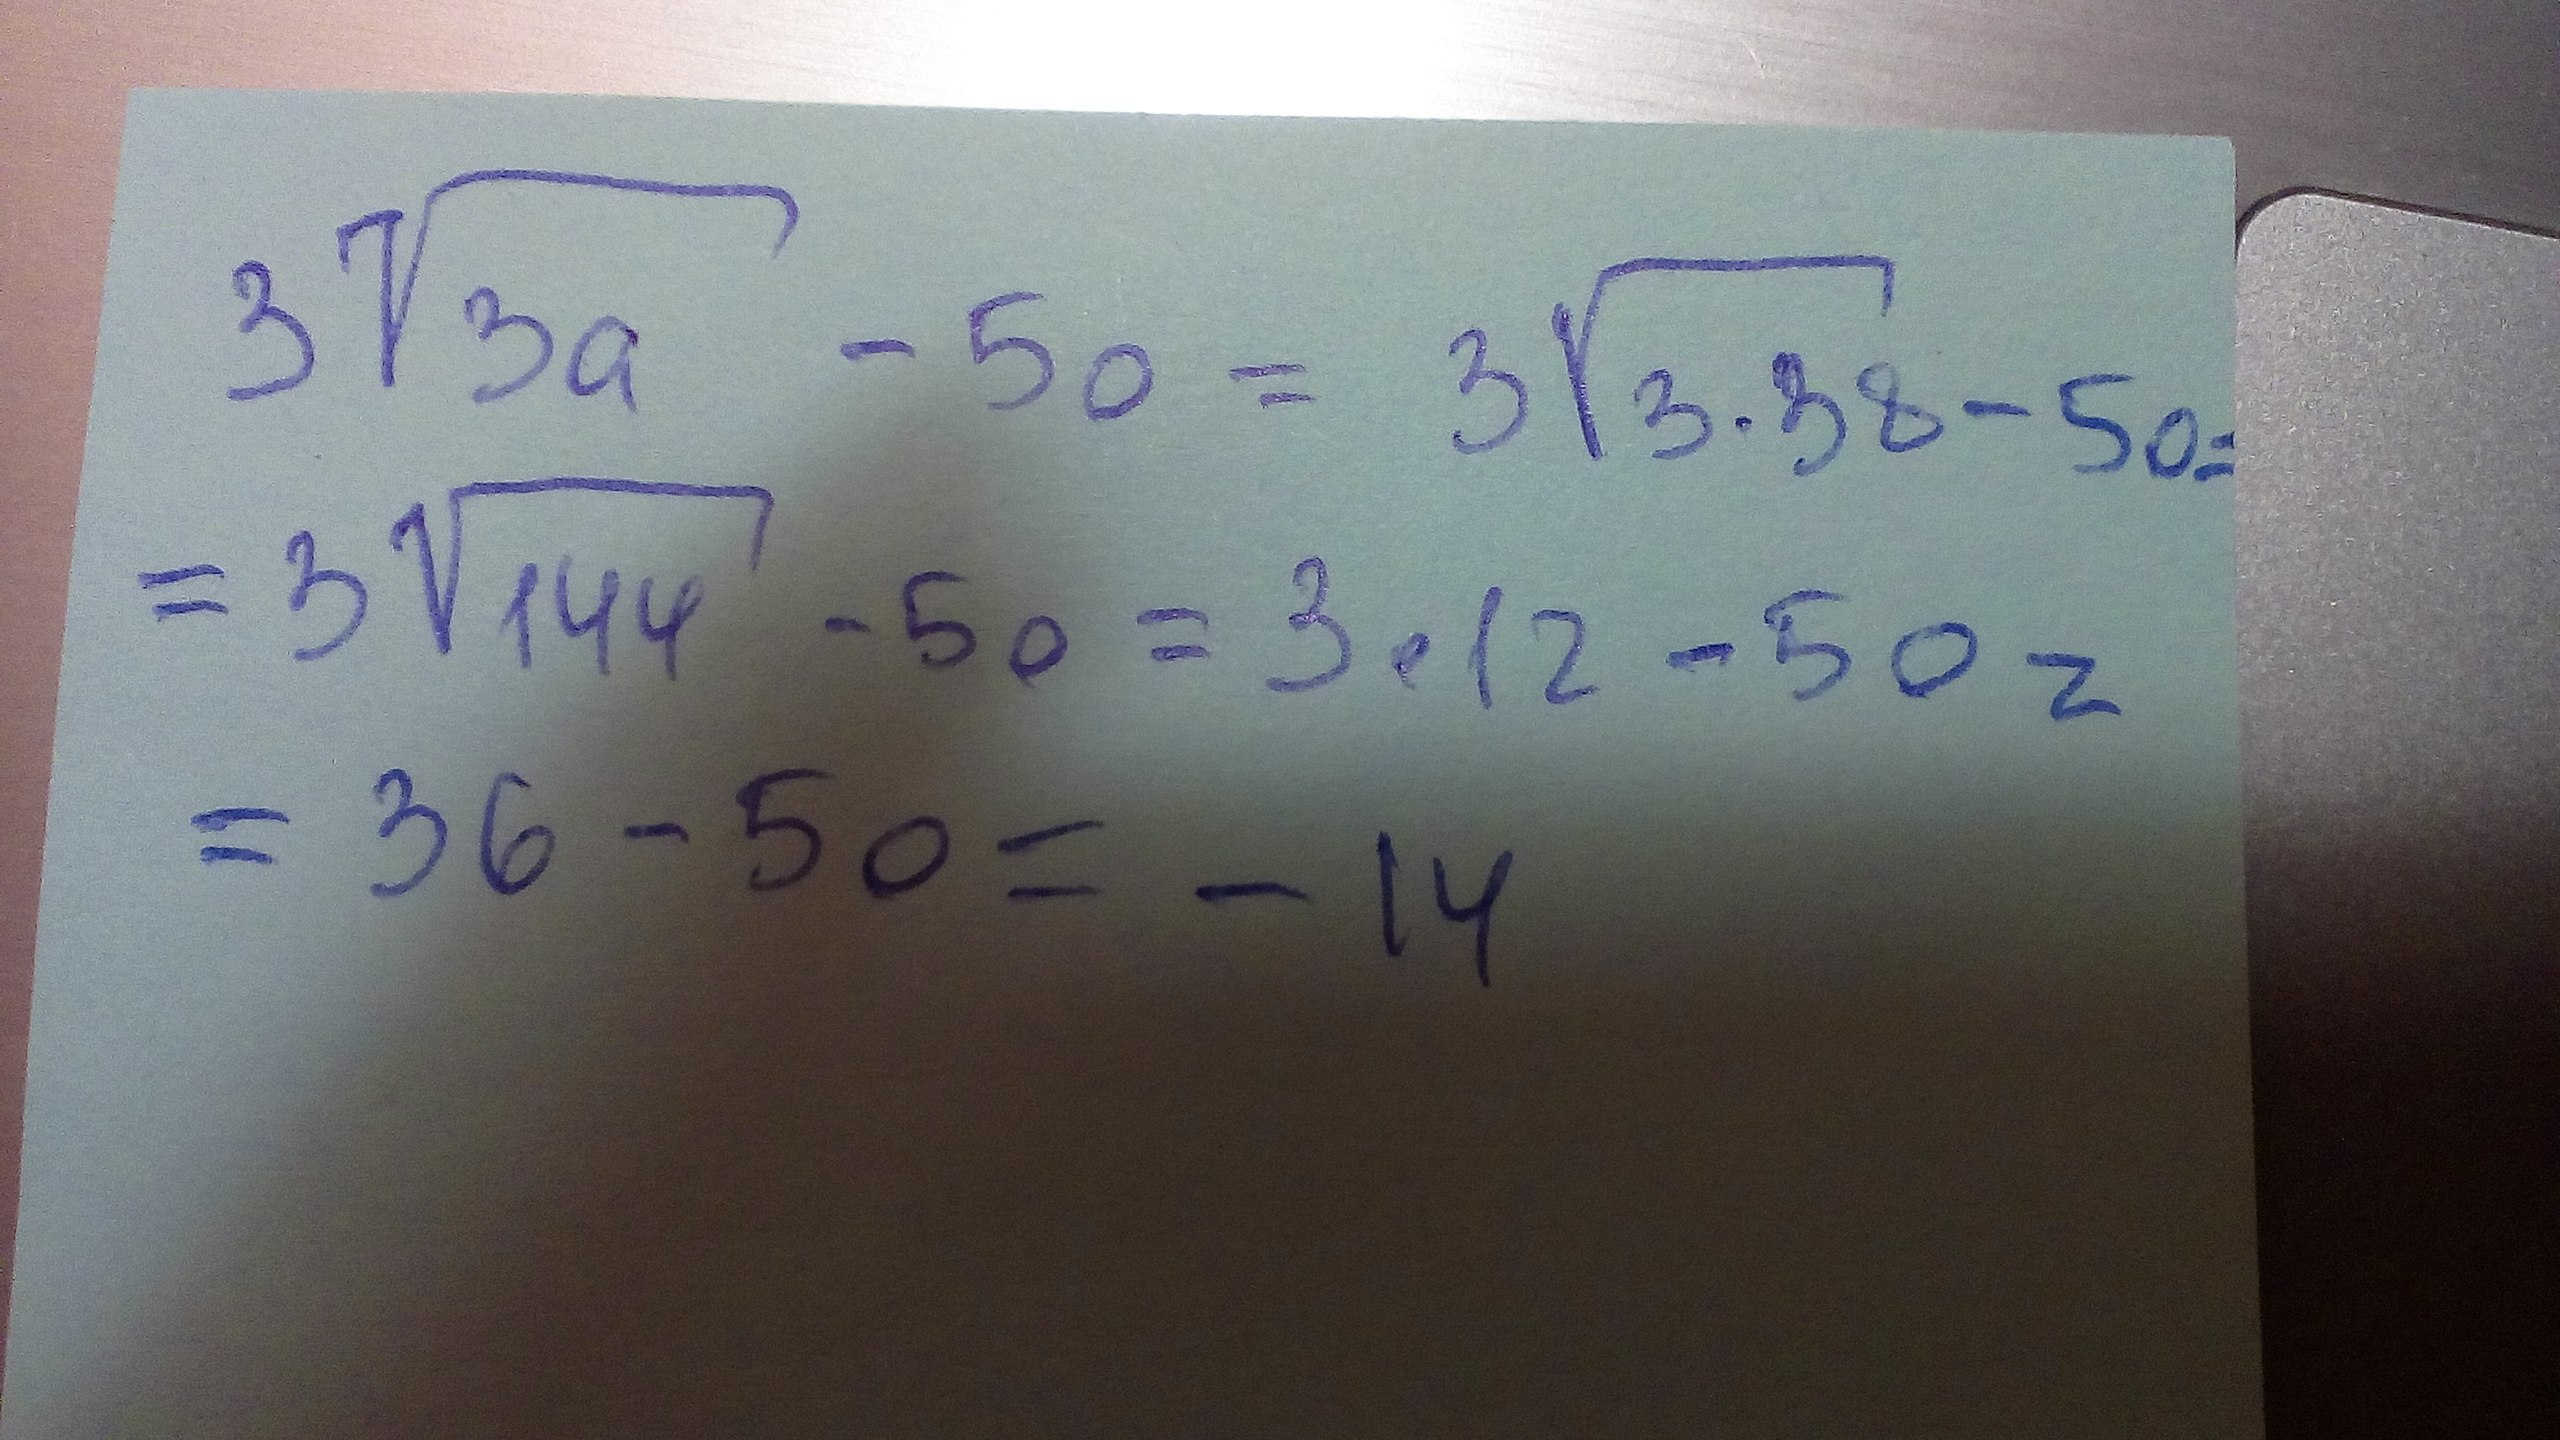 3√3a - 50 = 3√3·38 - 50 =
= 3√144 - 50 = 3·12 - 50 =
= 36 - 50 = - 14